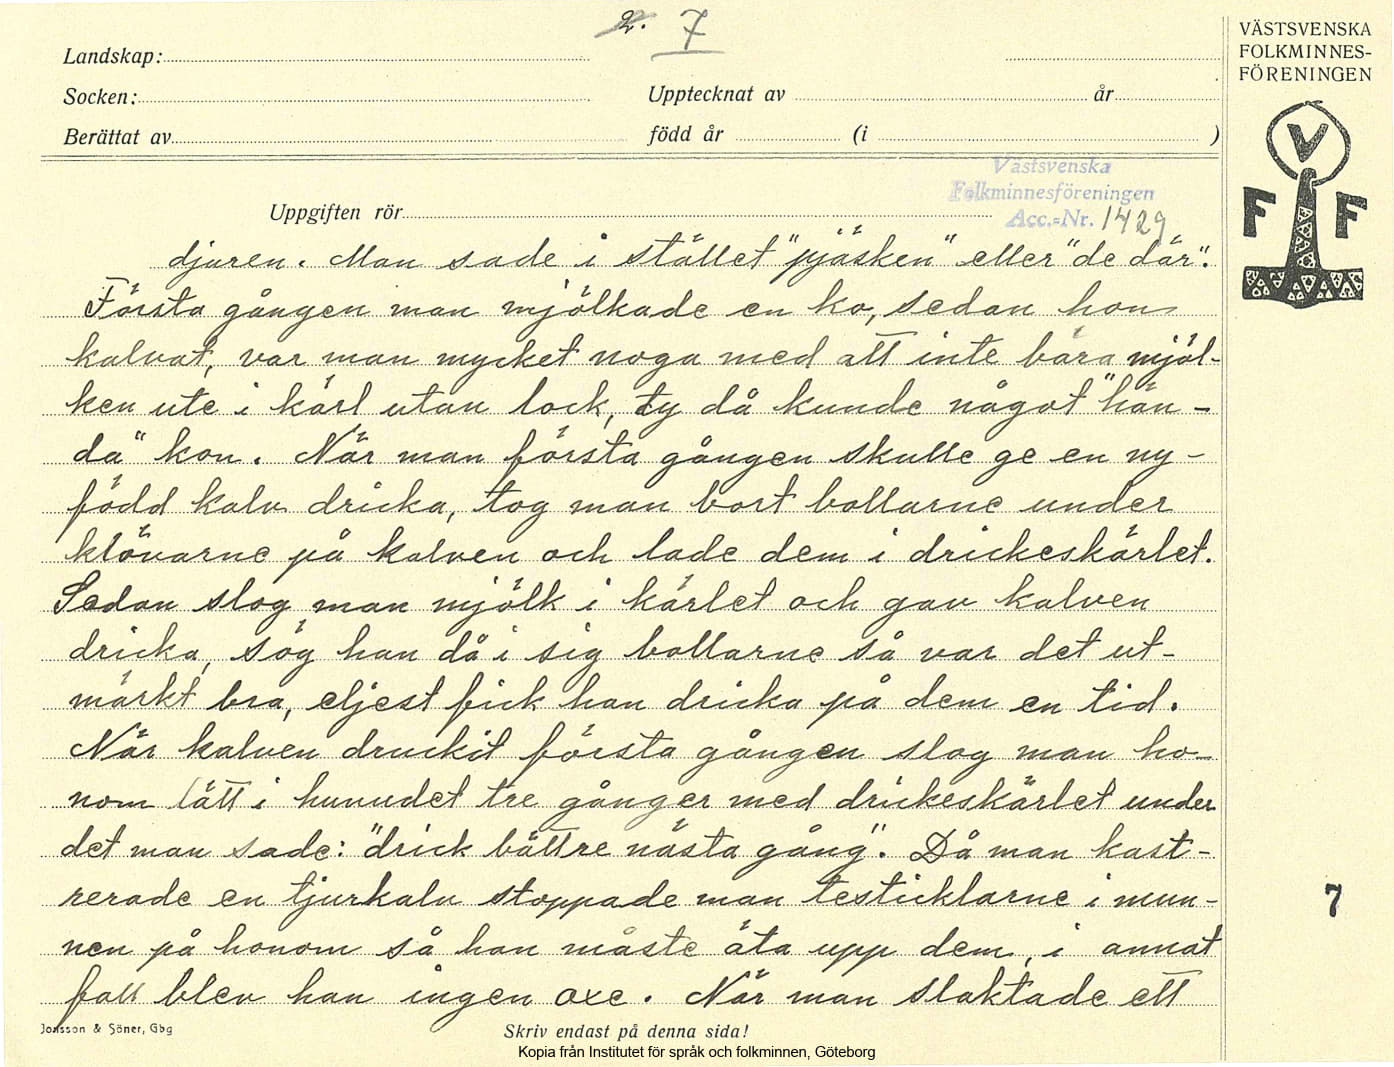 2. 7
VÄSTSVENSKA
FOLKMINNES-
FÖRENINGEN
Landskap:
Socken: Upptecknat av år
Berättat av född år (i )
V
F F
Västsvenska
Folkminnesföreningen
Acc.-Nr. 1429
Uppgiften rör
djuren. Man sade i stället "pjäsken" eller "de där".
Första gången man mjölkade en ko, sedan hon
kalvat, var man mycket noga med att inte bära mjöl-
ken ute i kärl utan lock, ty då kunde något "hän-
da" kon. När man första gången skulle ge en ny-
född kalv dricka, tog man bort bollarne under
klövarne på kalven och lade dem i drickeskärlet.
Sedan slog man mjölk i kärlet och gav kalven
dricka, sög han då i sig bollarne så var det ut-
märkt bra, eljest fick han dricka på dem en tid.
När kalven druckit första gången slog man ho-
nom lätt i huvudet tre gånger med drickeskärlet under
det man sade: "drick bättre nästa gång". Då man kast-
rerade en tjurkalv stoppade man testicklarne i mun-
nen på honom så han måste äta upp dem, i annat
fall blev han ingen oxe. När man slaktade ett
7
Jonsson & Söner, Gbg
Skriv endast på denna sida!
Kopia från Institutet för språk och folkminnen, Göteborg